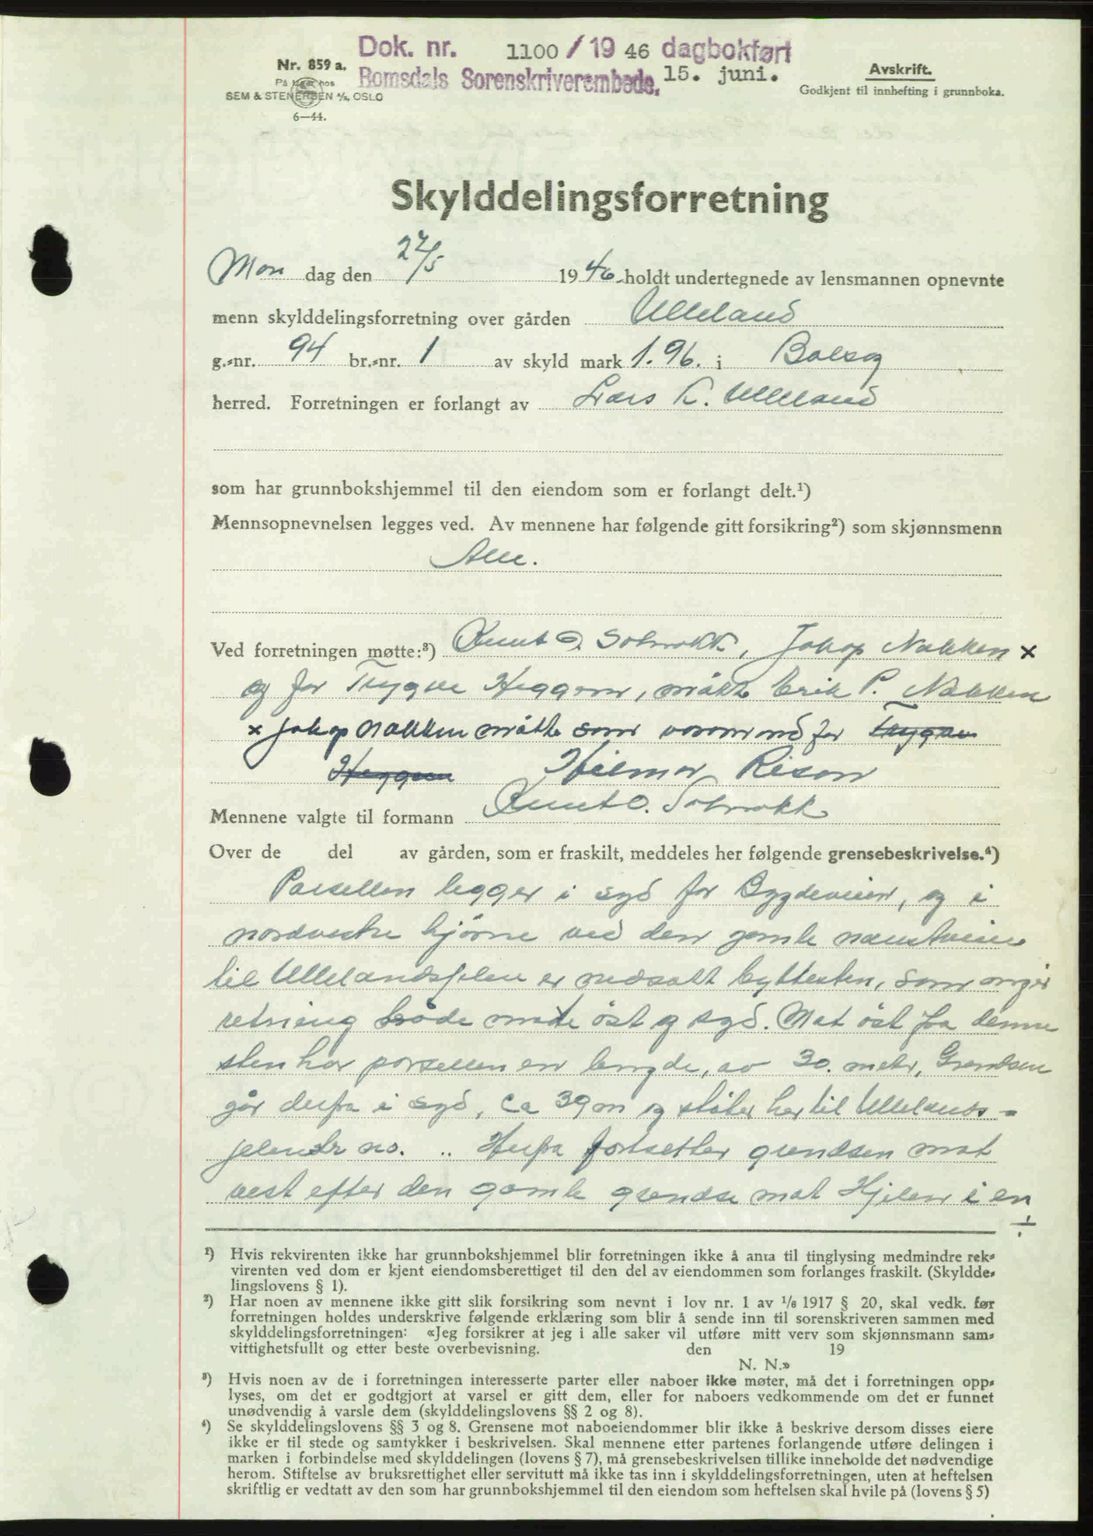 Dok. nr. 1100 / 19 46 dagbokført
Romsdals Sorenskriverembede, 15. juni.
Nr. 859 a.
På lager hos
SEM & STENERSEN A/S, OSLO
6—44.
Avskrift.
Godkjent til innhefting i grunnboka.
Skylddelingsforretning
Mon dag den 27/5 1946 holdt undertegnede av lensmannen opnevnte
menn skylddelingsforretning over gården Ulleland
g.-nr. 94 br.-nr. 1 av skyld mark 1.96. i Bolsøy
herred. Forretningen er forlangt av Lars L. Ulleland
som har grunnbokshjemmel til den eiendom som er forlangt delt.¹)
Mennsopnevnelsen legges ved. Av mennene har følgende gitt forsikring²) som skjønnsmenn
Alle.
Ved forretningen møtte:³) Knut O. Solnokk, Jakop Nakken ×
og for Trygve Heggem, møtte Erik P. Nakken
× Jakop Nakken møtte som varamnd for Trygve
Heggem Hilmar Risan
Mennene valgte til formann Knut O. Solnokk
Over de del av gården, som er fraskilt, meddeles her følgende grensebeskrivelse.⁴)
Parsellen legger i syd for Bygdeveien, og i
nordvestre hjørne ved den gamle naustveien
til Ullelandsfjelen er nedsatt byttesten, som angir
retning både mot øst og syd. Mot øst fra denne
sten har parsellen en lengde, av 30. meter, Grendsen
går derfra i syd, ca 39 m og støter her til Ullelands-
jelen br no. .. Herfra fortsetter grendsen mot
vest efter den gamle grendse mot Hjelen i en
¹) Hvis rekvirenten ikke har grunnbokshjemmel blir forretningen ikke å anta til tinglysing medmindre rek-
virenten ved dom er kjent eiendomsberettiget til den del av eiendommen som forlanges fraskilt. (Skyldde-
lingslovens § 1).
²) Har noen av mennene ikke gitt slik forsikring som nevnt i lov nr. 1 av 1/6 1917 § 20, skal vedk. før
forretningen holdes underskrive følgende erklæring som blir å sende inn til sorenskriveren sammen med
skylddelingsforretningen: «Jeg forsikrer at jeg i alle saker vil utføre mitt verv som skjønnsmann sam-
vittighetsfullt og etter beste overbevisning. den 19
N. N.»
³) Hvis noen av de i forretningen interesserte parter eller naboer ikke møter, må det i forretningen opp-
lyses, om det er godtgjort at varsel er gitt dem, eller for naboers vedkommende om det er funnet
unødvendig å varsle dem (skylddelingslovens §§ 2 og 8).
⁴) Se skylddelingslovens §§ 3 og 8. Grensene mot naboeiendommer blir ikke å beskrive dersom disses eiere
ikke er til stede og samtykker i beskrivelsen. Skal mennene etter partenes forlangende utføre delingen i
marken i forbindelse med skylddelingen (lovens § 7), må grensebeskrivelsen tillike inneholde det nødvendige
herom. Stiftelse av bruksrettighet eller servitutt må ikke tas inn i skylddelingsforretningen, uten at heftelsen
skriftlig er vedtatt av den som har grunnbokshjemmel til den eiendom som heftelsen skal hvile på (lovens § 5)